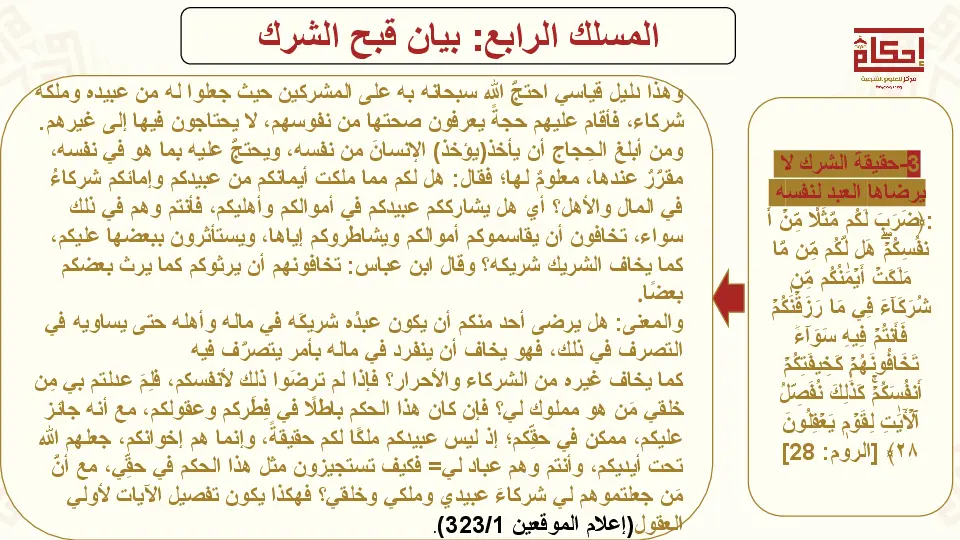 المسلك الرابع: بيان قبح الشرك
إحكام
مركز للعلوم الشرعية
3-حقيقة الشرك لا
يرضاها العبد لنفسه
:﴿ضَرَبَ لَكُم مَّثَلٗا مِّنۡ أَ
نفُسِكُمۡۖ هَل لَّكُم مِّن مَّا
مَلَكَتۡ أَيۡمَٰنُكُم مِّن
شُرَكَآءَ فِي مَا رَزَقۡنَٰكُمۡ
فَأَنتُمۡ فِيهِ سَوَآءٞ
تَخَافُونَهُمۡ كَخِيفَتِكُمۡ
أَنفُسَكُمۡۚ كَذَٰلِكَ نُفَصِّلُ
ٱلۡأٓيَٰتِ لِقَوۡمٖ يَعۡقِلُونَ
٢٨﴾ [الروم: 28]
وهذا دليل قياسي احتجَّ الله سبحانه به على المشركين حيث جعلوا له من عبيده وملكه
شركاء، فأقام عليهم حجةً يعرفون صحتها من نفوسهم، لا يحتاجون فيها إلى غيرهم.
ومن أبلغ الحِجاج أن يأخذ(يؤخذ) الإنسانَ من نفسه، ويحتجَّ عليه بما هو في نفسه،
مقرَّرٌ عندها، معلومٌ لها؛ فقال: هل لكم مما ملكت أيمانكم من عبيدكم وإمائكم شركاءُ
في المال والأهل؟ أي هل يشارككم عبيدكم في أموالكم وأهليكم، فأنتم وهم في ذلك
سواء، تخافون أن يقاسموكم أموالكم ويشاطروكم إياها، ويستأثرون ببعضها عليكم،
كما يخاف الشريك شريكه؟ وقال ابن عباس: تخافونهم أن يرثوكم كما يرث بعضكم
بعضًا.
والمعنى: هل يرضى أحد منكم أن يكون عبدُه شريكَه في ماله وأهله حتى يساويه في
التصرف في ذلك، فهو يخاف أن ينفرد في ماله بأمر يتصرَّف فيه
كما يخاف غيره من الشركاء والأحرار؟ فإذا لم ترضَوا ذلك لأنفسكم، فلِمَ عدلتم بي مِن
خلقي مَن هو مملوك لي؟ فإن كان هذا الحكم باطلًا في فِطَركم وعقولكم، مع أنه جائز
عليكم، ممكن في حقِّكم؛ إذ ليس عبيدكم ملكًا لكم حقيقةً، وإنما هم إخوانكم، جعلهم الله
تحت أيديكم، وأنتم وهم عباد لي= فكيف تستجيزون مثل هذا الحكم في حقِّي، مع أنَّ
مَن جعلتموهم لي شركاءَ عبيدي وملكي وخلقي؟ فهكذا يكون تفصيل الآيات لأولي
العقول(إعلام الموقعين 323/1).